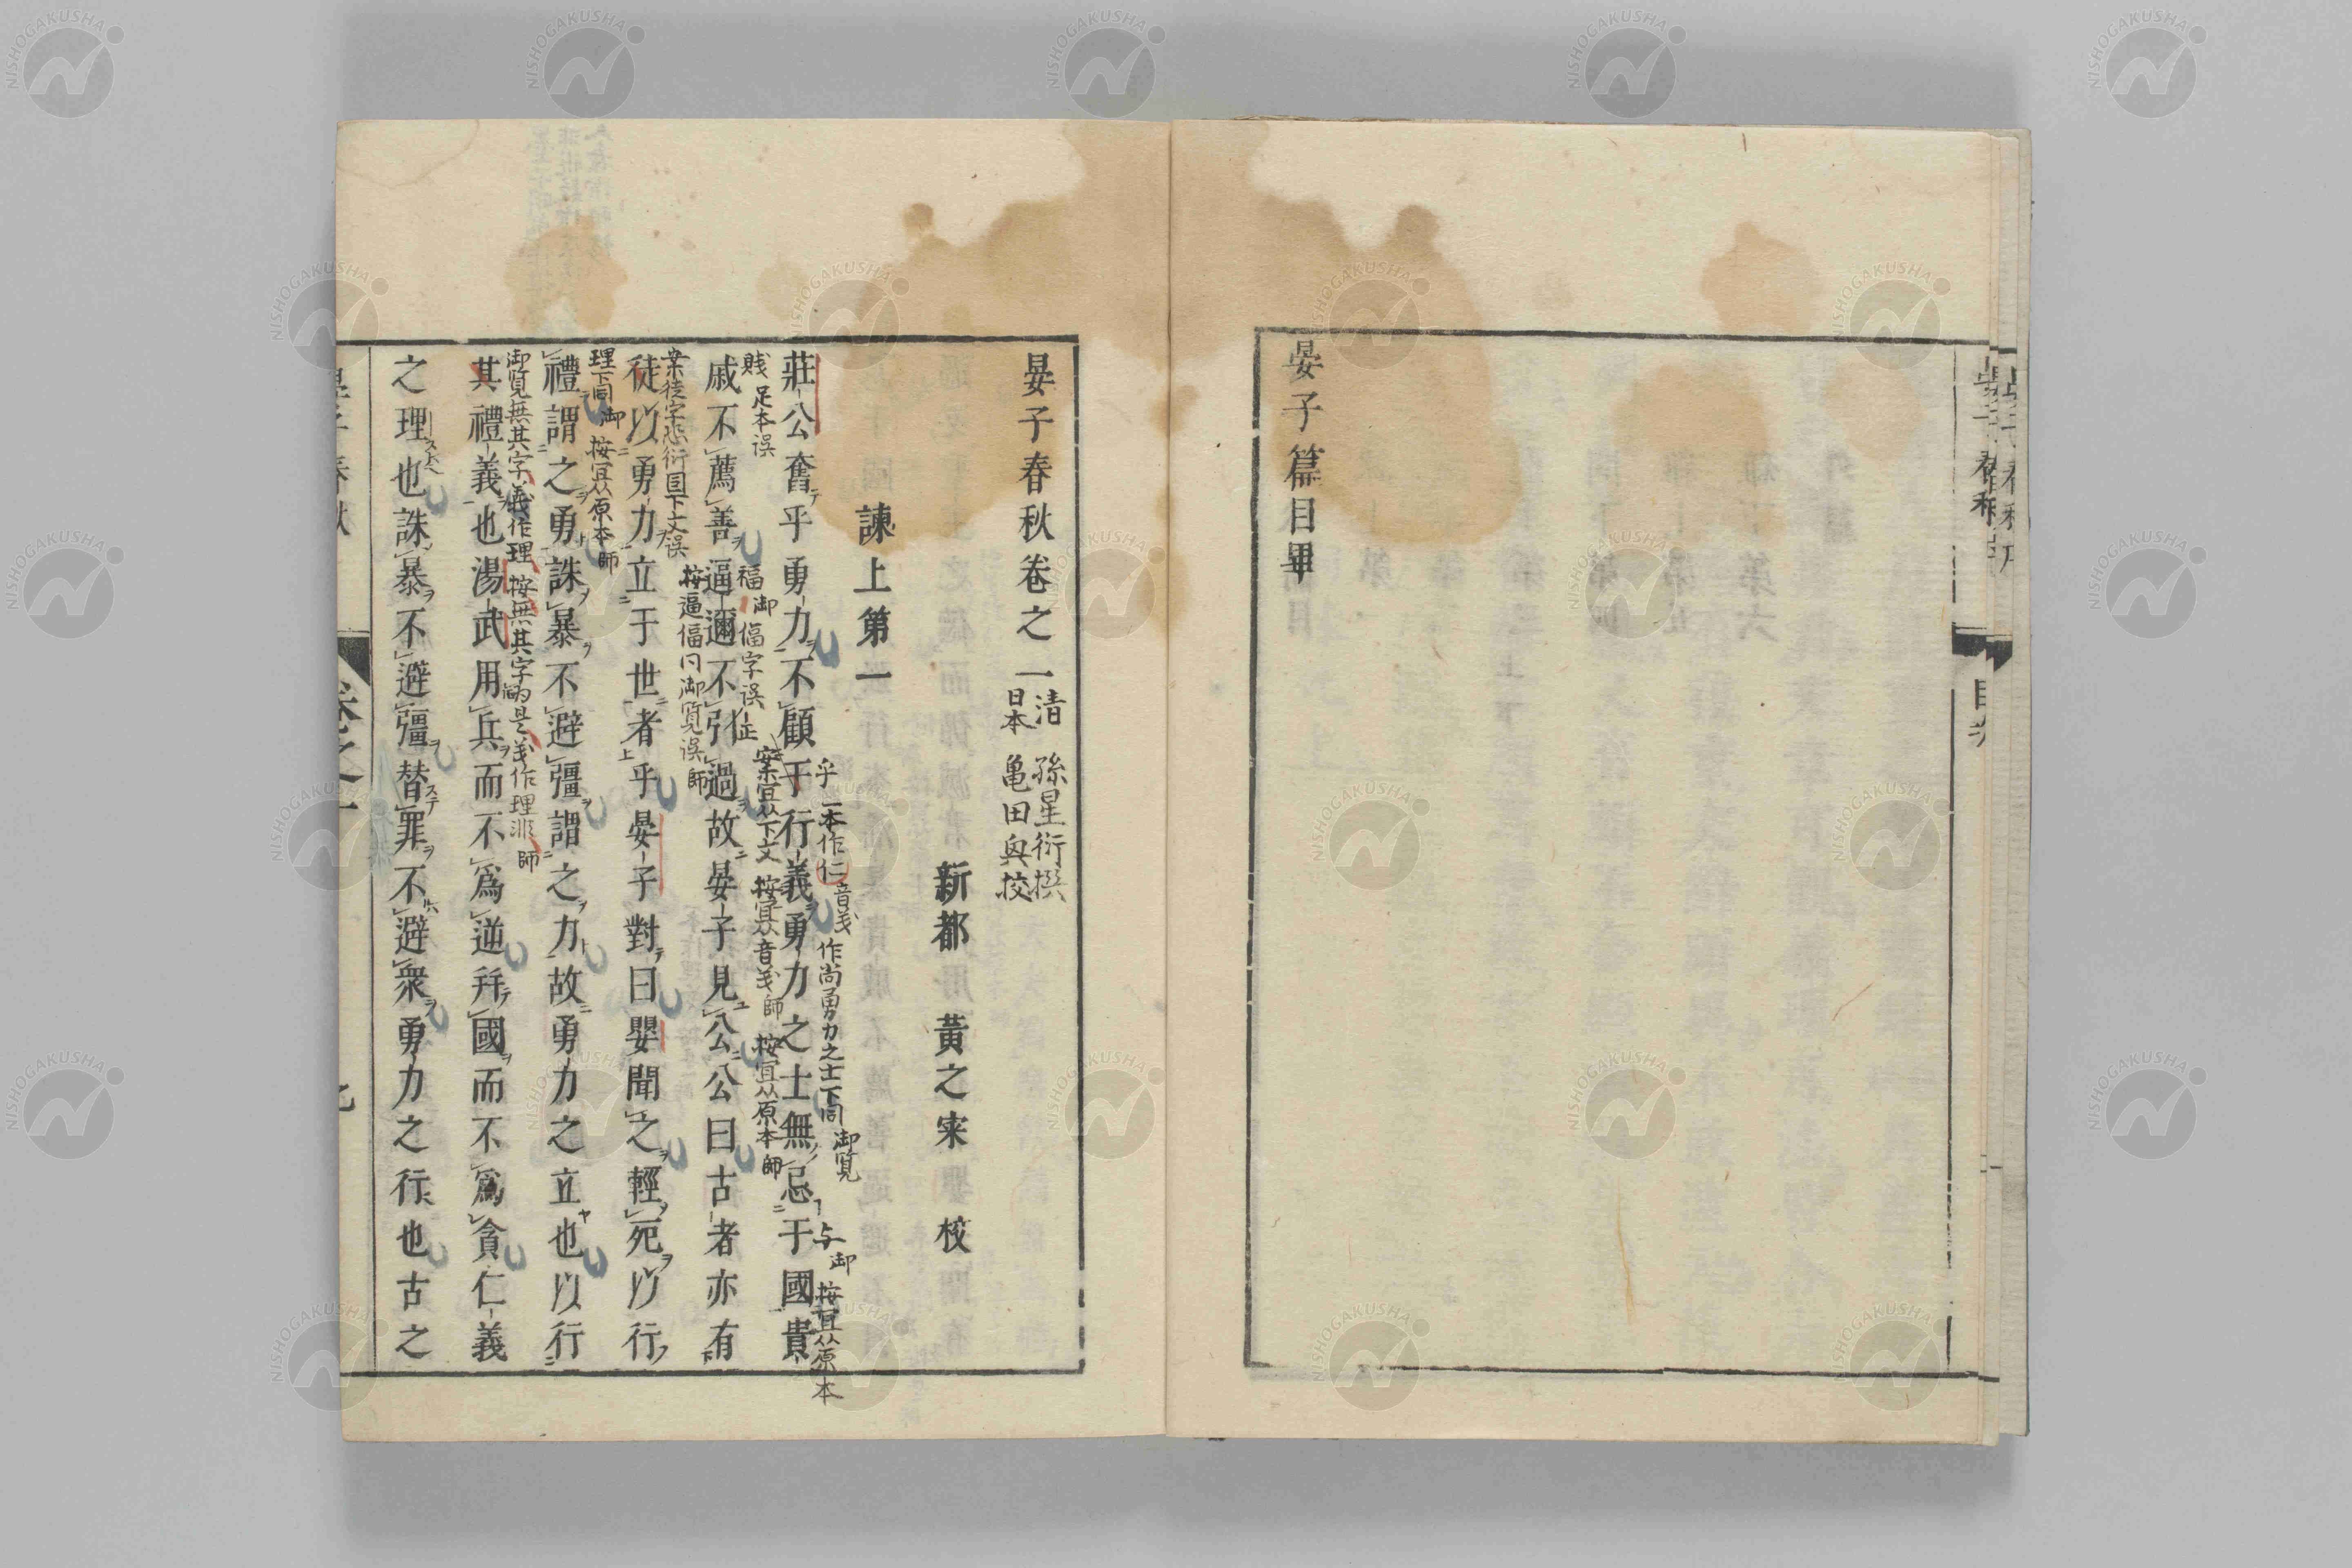 晏子篇目畢
晏子春秋卷之一
清 孫星衍撰
日本 亀田興挍
新都 黃之寀 校
諫上第一
莊公奮乎勇力不顧于行義勇力之士無忌于國貴
乎一本作仁音義作尚勇力之士下同御覧
与御 按宜从原本
戚不薦善逼邇不引過故晏子見公公曰古者亦有
賎 足本误
福御 偪字误 㱏
案宜从下文 按宜从音義師 按宜从原本師
徒以勇力立于世者乎晏子對曰嬰聞之輕死以行
案徒字恐衍 国下文误
按逼偪同御覧误師
禮謂之勇誅暴不避彊謂之力故勇力之立也以行
理下同御 按宜从原本師
其禮義也湯武用兵而不爲逆并國而不爲貪仁義
御覧無其字義作理 按無其字為是義作理非師
之理也誅暴不避彊替罪不避衆勇力之行也古之
NISHOGAKUSHA